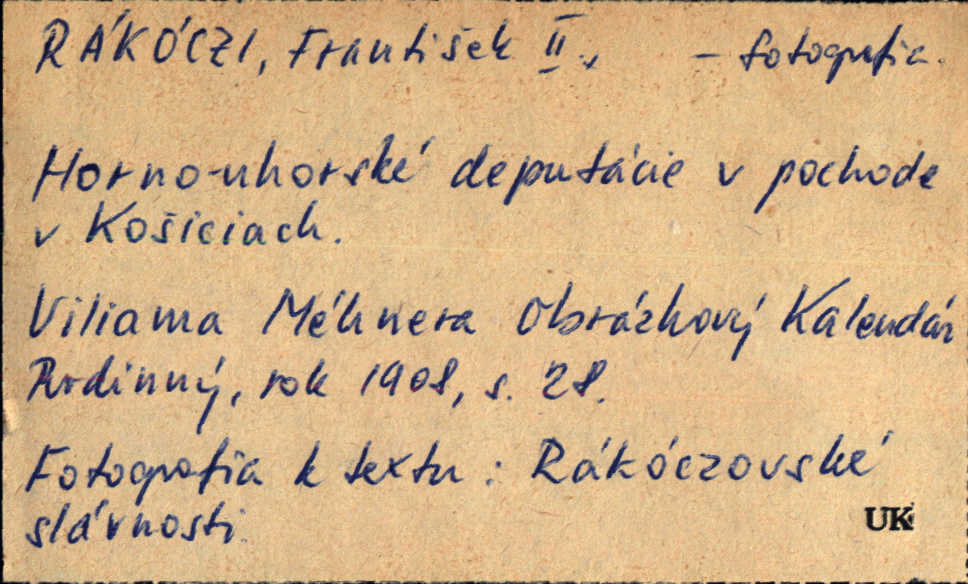 RÁKÓCZI, František II., - fotografia.
Horno-uhorské deputácie v pochode
v Košiciach.
Viliama Méhnera Obrázkový Kalendár
Rodinný, rok 1908, s. 28.
Fotografia k textu: Rákóczovské
slávnosti.
UK